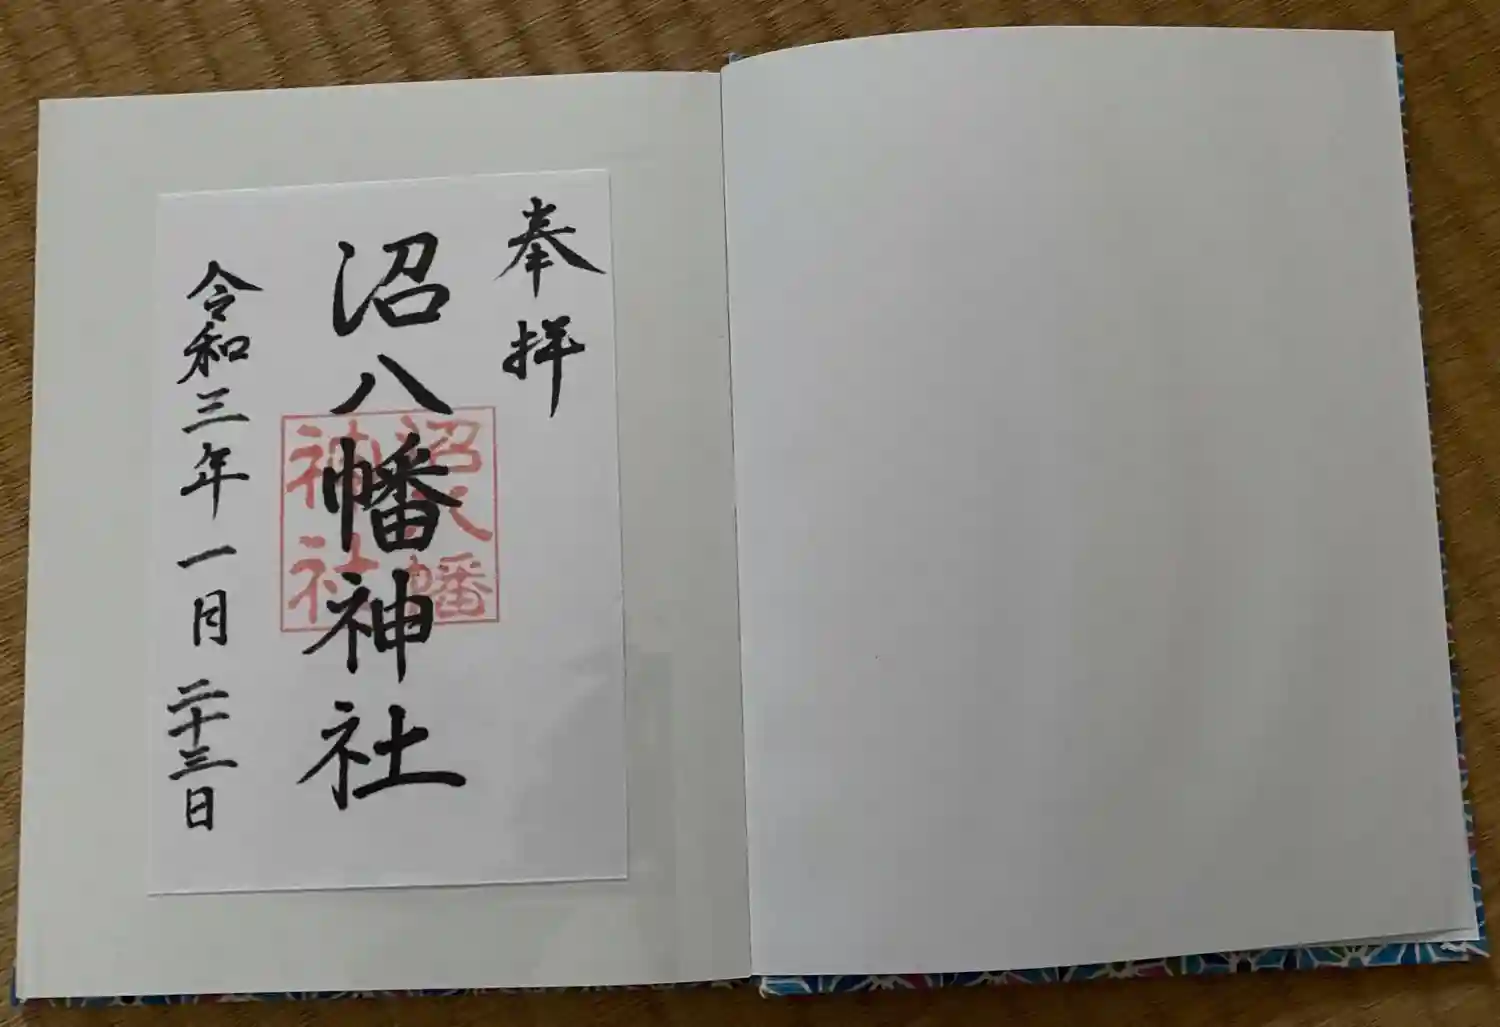 奉拝
沼八幡神社
令和三年一月二十三日
沼八幡
神社